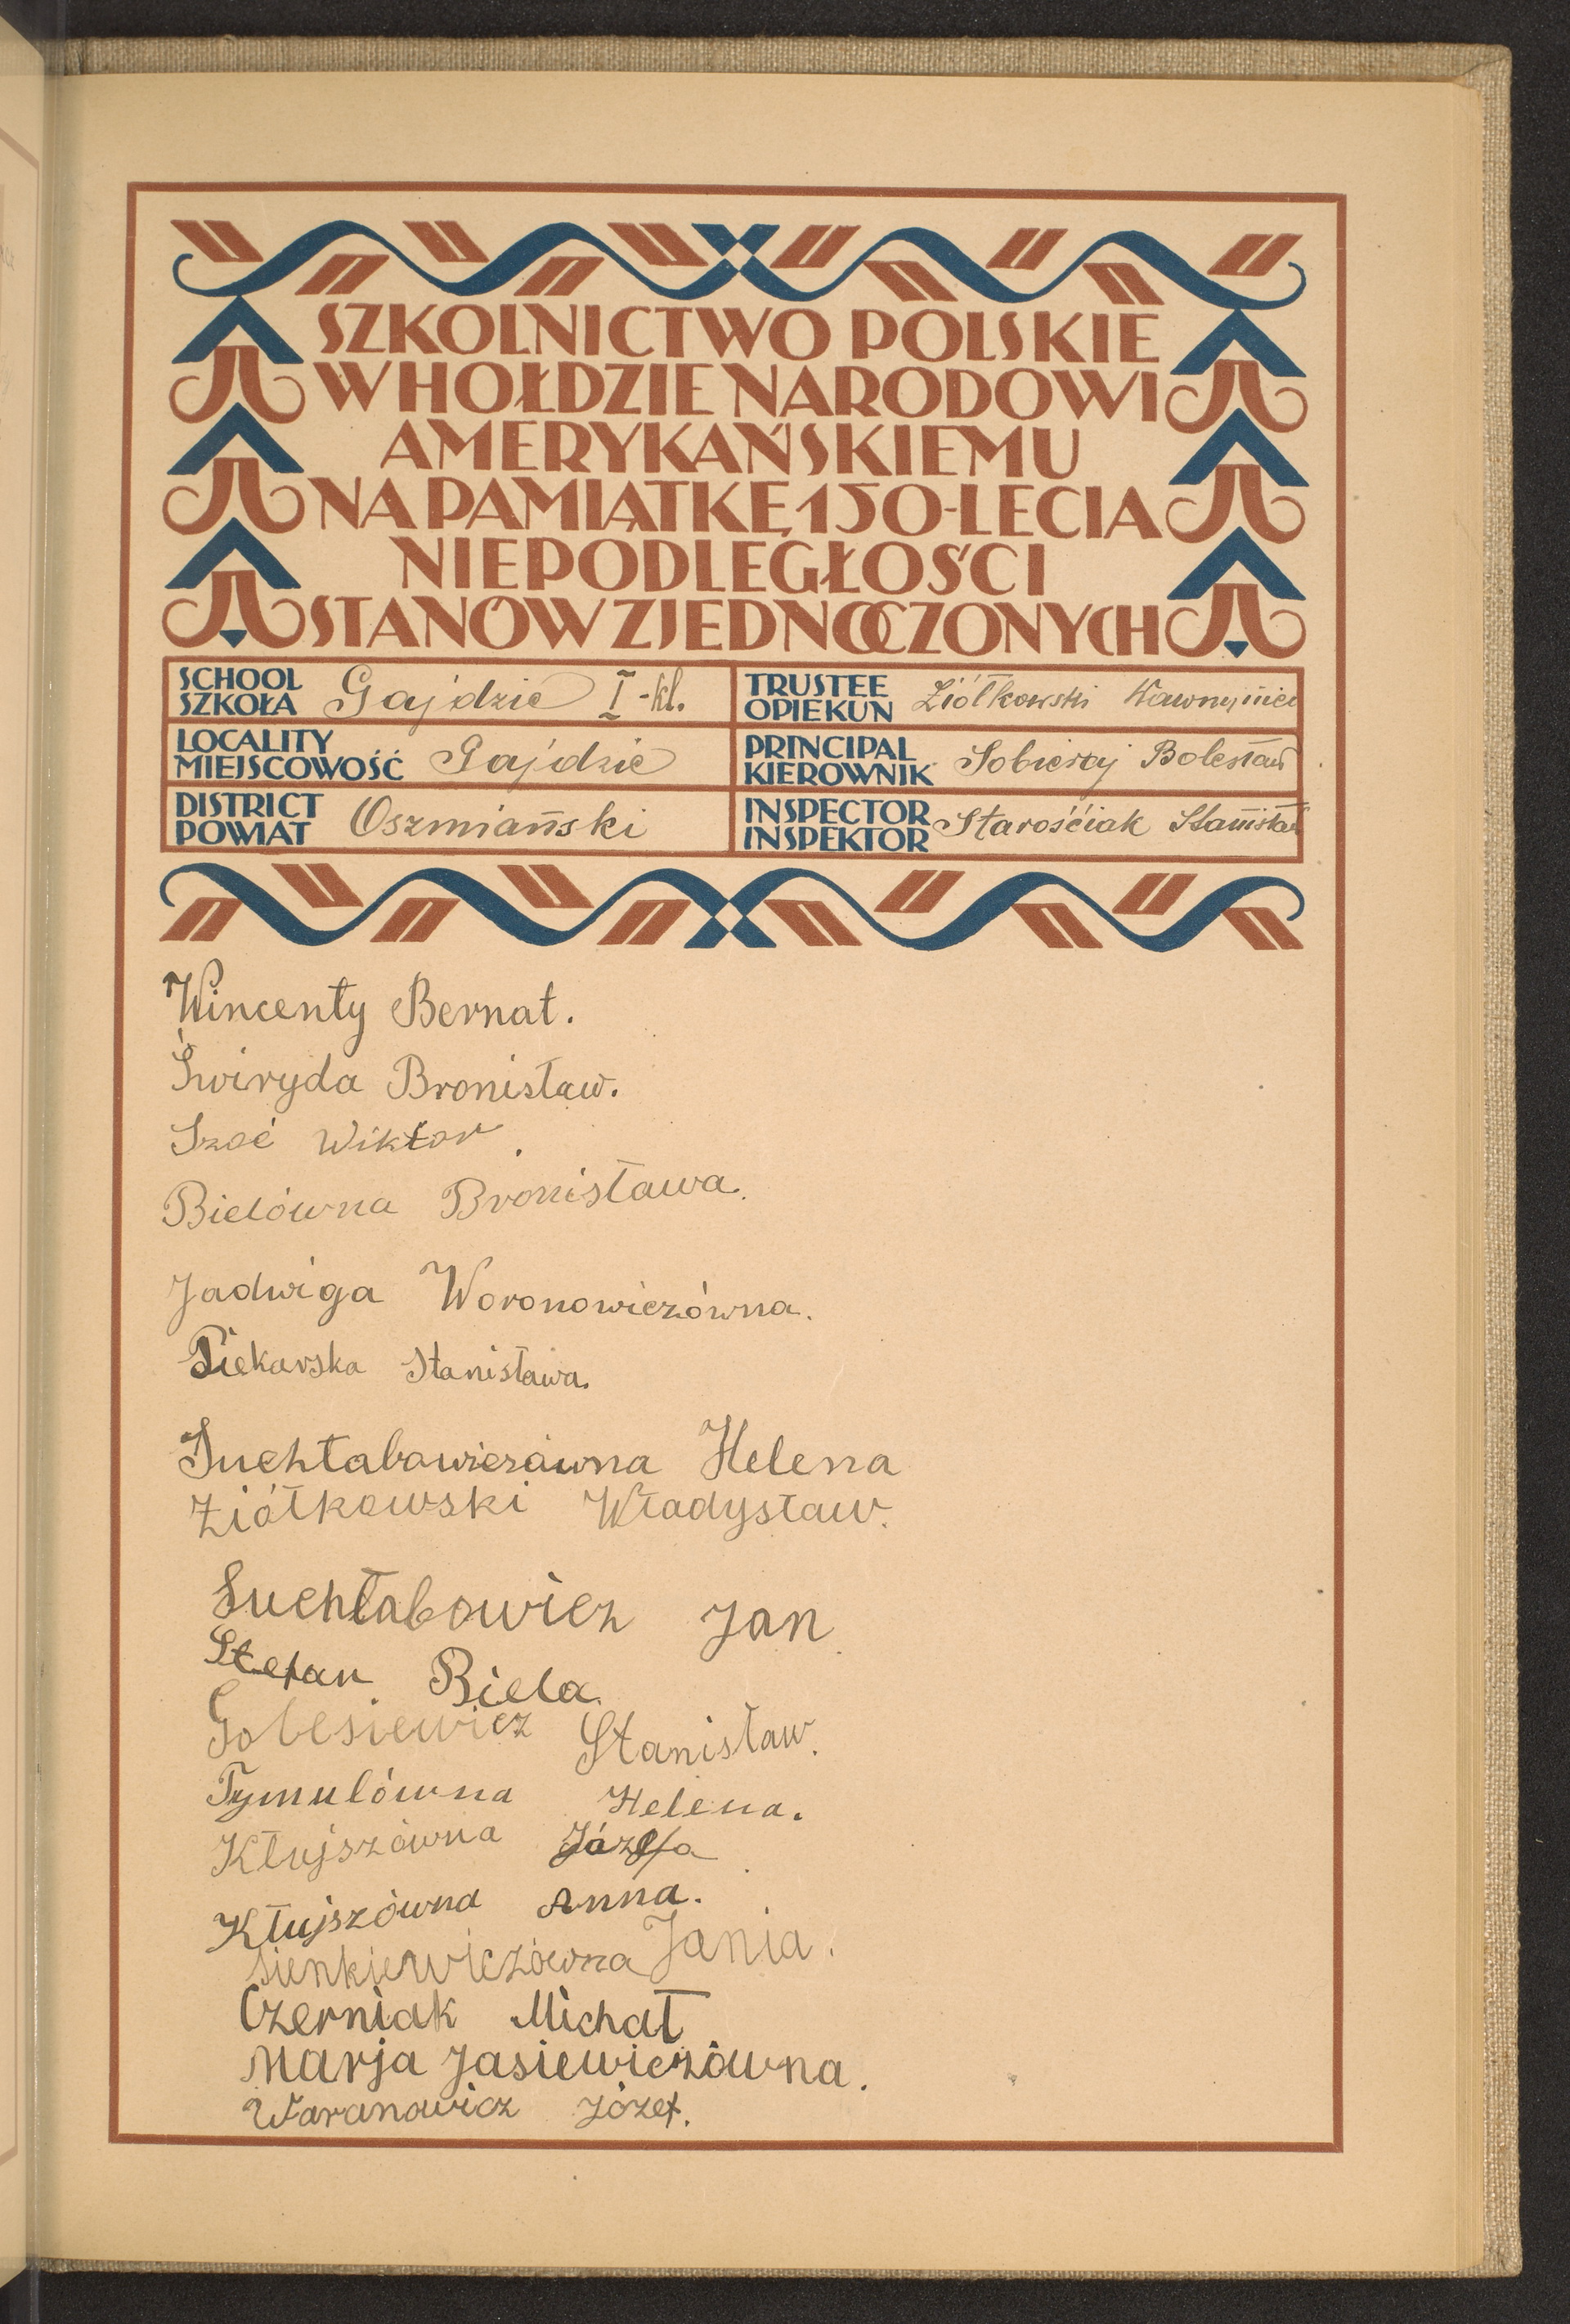 SZKOLNICTWO POLSKIE
W HOŁDZIE NARODOWI
AMERYKAŃSKIEMU
NA PAMIĄTKĘ 150-LECIA
NIEPODLEGŁOŚCI
STANÓW ZJEDNOCZONYCH
SCHOOL
SZKOŁA Gajdzie I-kl.
TRUSTEE
OPIEKUN Ziółkowski Wawrzyniec
LOCALITY
MIEJSCOWOŚĆ Gajdzie
PRINCIPAL
KIEROWNIK Sobieraj Bolesław
DISTRICT
POWIAT Oszmiański
INSPECTOR
INSPEKTOR Starościak Stanisław
Wincenty Bernat.
Świryda Bronisław.
Szoć Wiktor.
Bielówna Bronisława.
Jadwiga Woronowiczówna.
Piekarska Stanisława.
Suchtabowiczówna Helena
Ziółkowski Władysław.
Suchtabowicz Jan
Stefan Biela.
Stanisław.
Tymulówna Helena.
Kłujszówna Józefa
Kłujszówna Anna.
Sienkiewiczówna Jania.
Czerniak Michał
Marja Jasiewiczówna.
Waranowicz Józef.